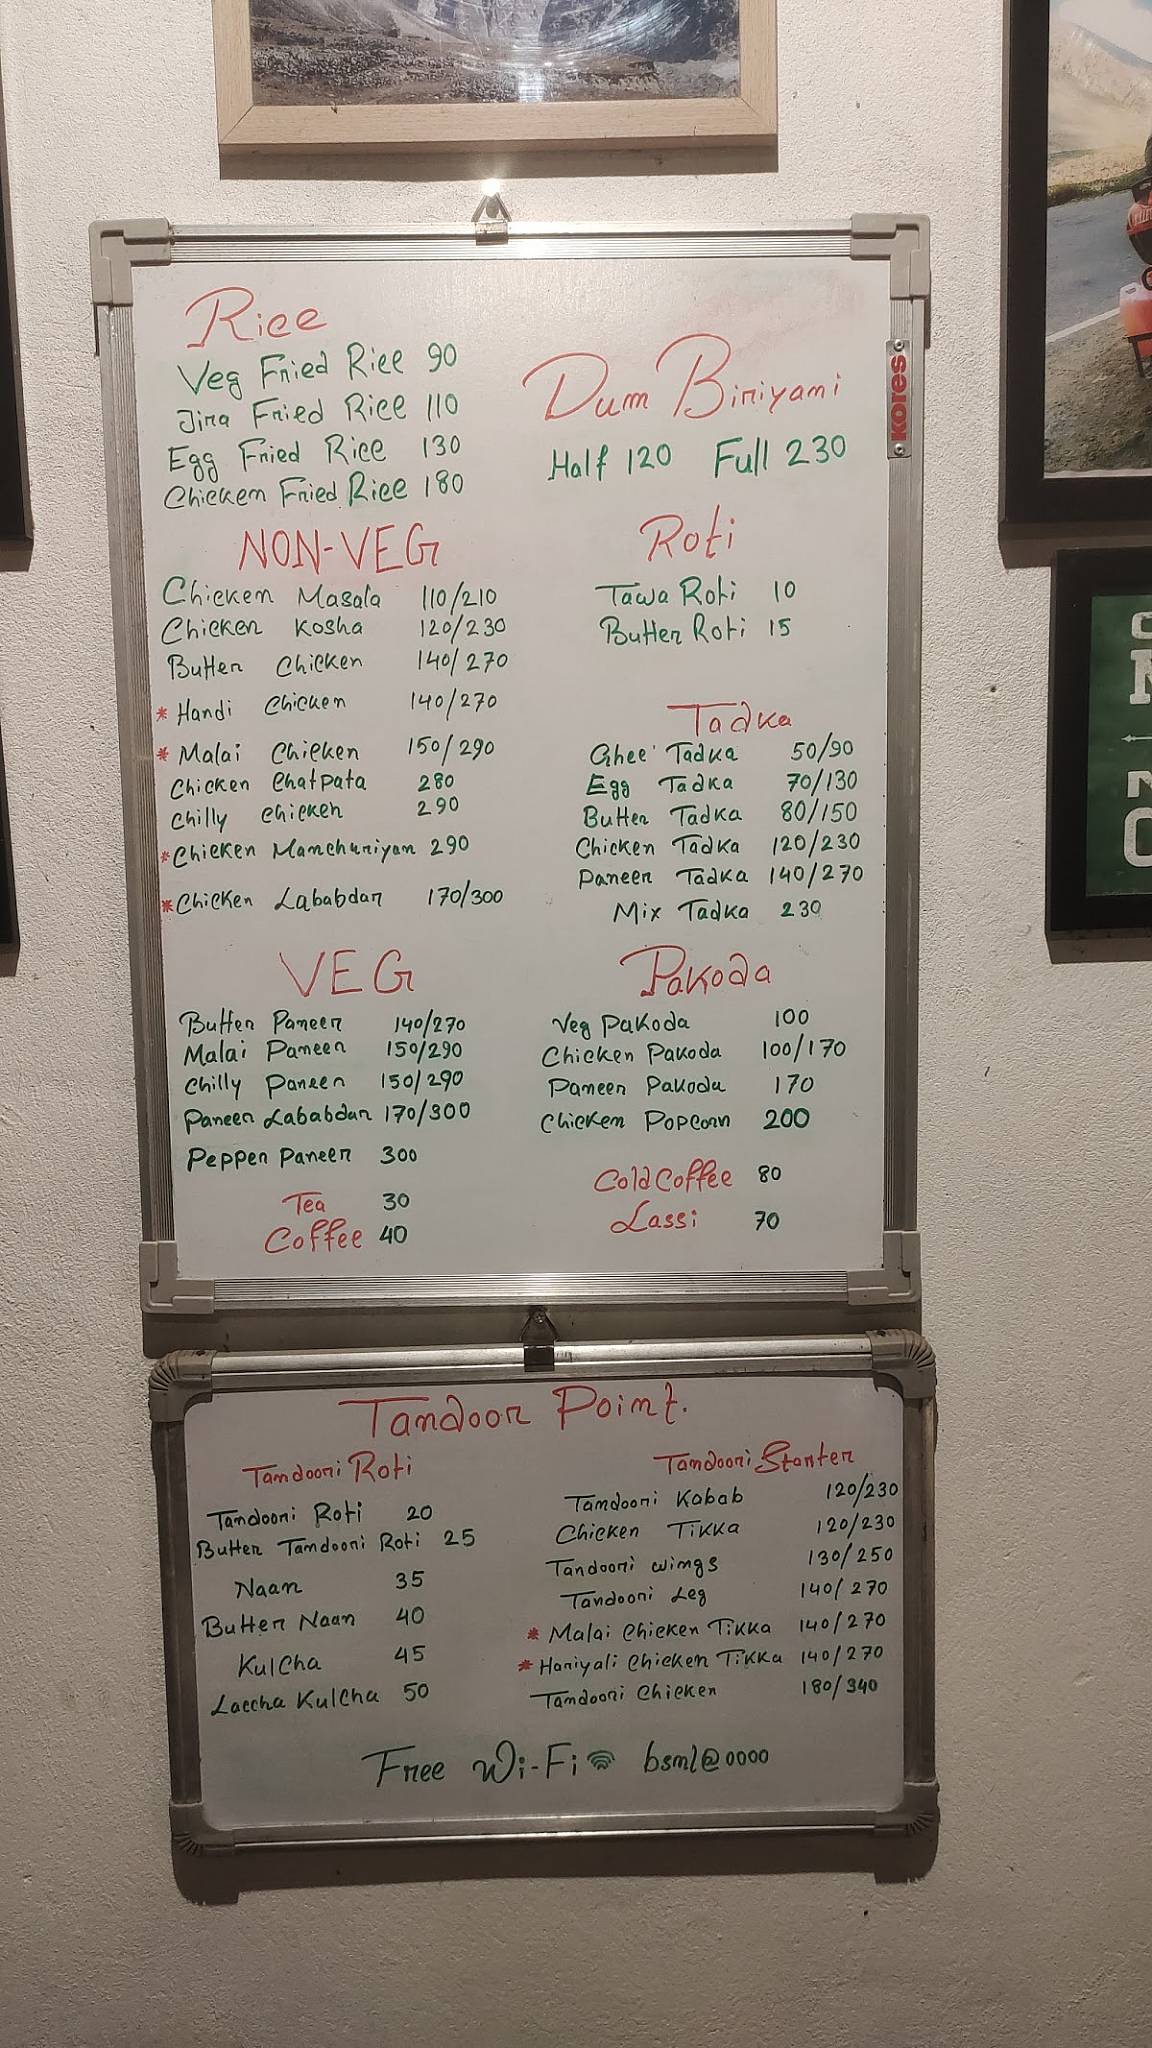 Rice
Veg Fried Rice 90
Jira Fried Rice 110
Egg Fried Rice 130
Chicken Fried Rice 180
Dum Biriyani
Half 120 Full 230
KORES
NON-VEG
Chicken Masala 110/210
Chicken Kosha 120/230
Butter Chicken 140/270
* Handi Chicken 140/270
* Malai Chicken 150/290
Chicken Chatpata 280
Chilly Chicken 290
* Chicken Manchuriyan 290
* Chicken Lababdar 170/300
Roti
Tawa Roti 10
Butter Roti 15
Tadka
Ghee Tadka 50/90
Egg Tadka 70/130
Butter Tadka 80/150
Chicken Tadka 120/230
Paneer Tadka 140/270
Mix Tadka 230
VEG
Butter Paneer 140/270
Malai Paneer 150/290
Chilly Paneer 150/290
Paneer Lababdar 170/300
Pepper Paneer 300
Tea 30
Coffee 40
Pakoda
Veg Pakoda 100
Chicken Pakoda 100/170
Paneer Pakoda 170
Chicken Popcorn 200
Cold Coffee 80
Lassi 70
Tandoor Point.
Tandoori Roti
Tandoori Roti 20
Butter Tandoori Roti 25
Naan 35
Butter Naan 40
Kulcha 45
Laccha Kulcha 50
Tandoori Starter
Tandoori Kabab 120/230
Chicken Tikka 120/230
Tandoori wings 130/250
Tandoori Leg 140/270
* Malai Chicken Tikka 140/270
* Hariyali Chicken Tikka 140/270
Tandoori Chicken 180/340
Free Wi-Fi bsnl@0000